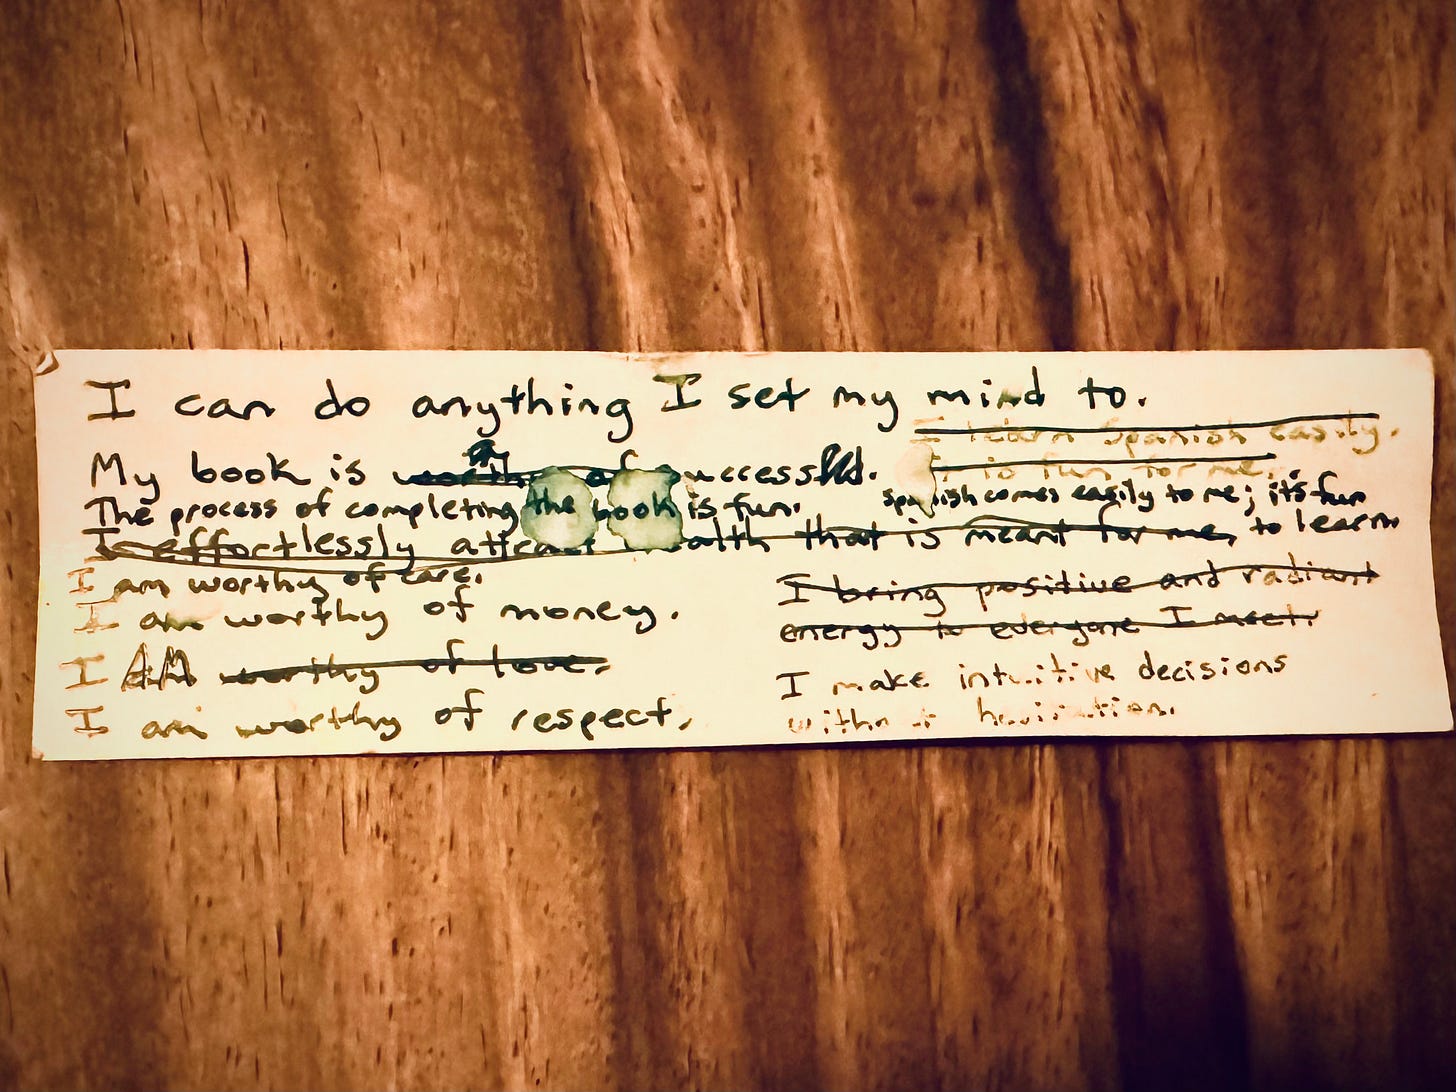 I can do anything I set my mind to.
I learn Spanish easily.
My book is worth of success.
is fun for me.
The process of completing the book is fun.
Spanish comes easily to me; it's fun
to learn
I effortlessly attract wealth that is meant for me,
I am worthy of care.
I am worthy of money.
I AM worthy of love.
I am worthy of respect.
I bring positive and radiant
energy to everyone I meet.
I make intuitive decisions
without hesitation.